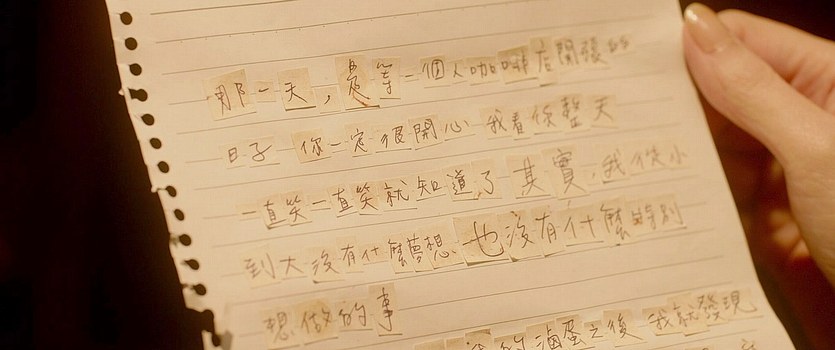 那一天,是等一個人咖啡店開張的
日子 你一定很開心 我看你整天
一直笑一直笑就知道了 其實,我從小
到大沒有什麼夢想 也沒有什麼特別
想做的事
的滷蛋之後 我就發現